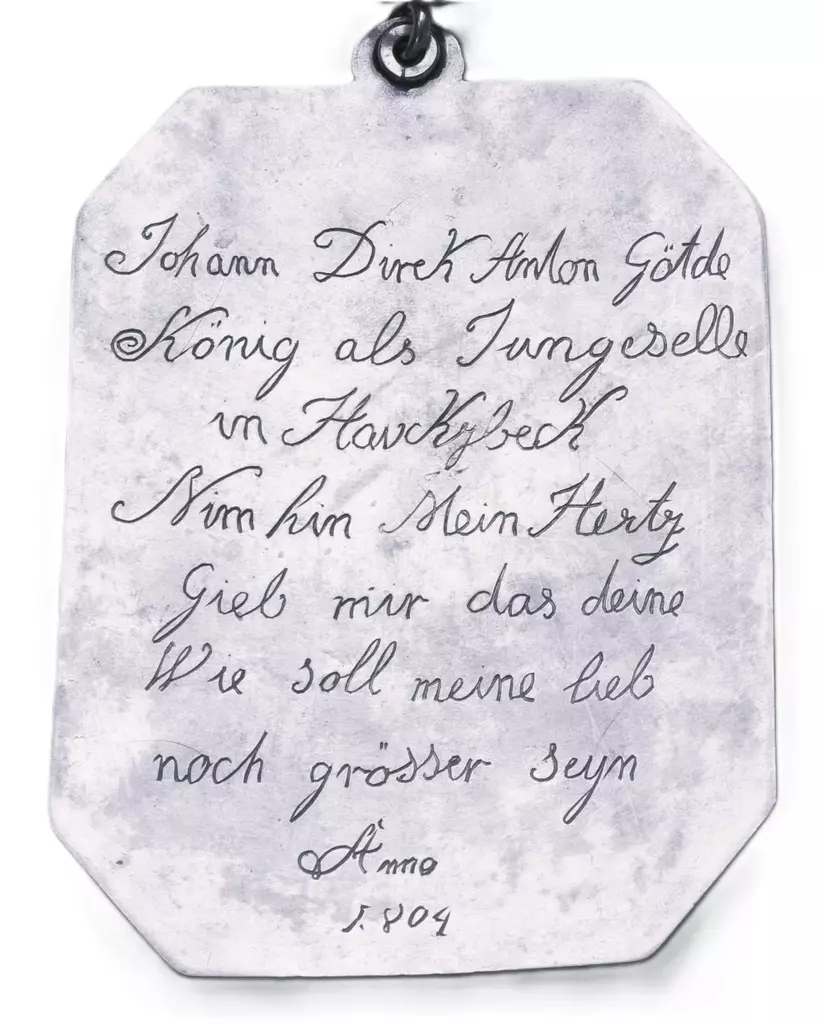 Johann Dirck Anton Götde
König als Jungeselle
in Havckzbeck
Nim hin Mein Hertz
Gieb mir das deine
Wie soll meine lieb
noch grösser seyn
Anno
1.804